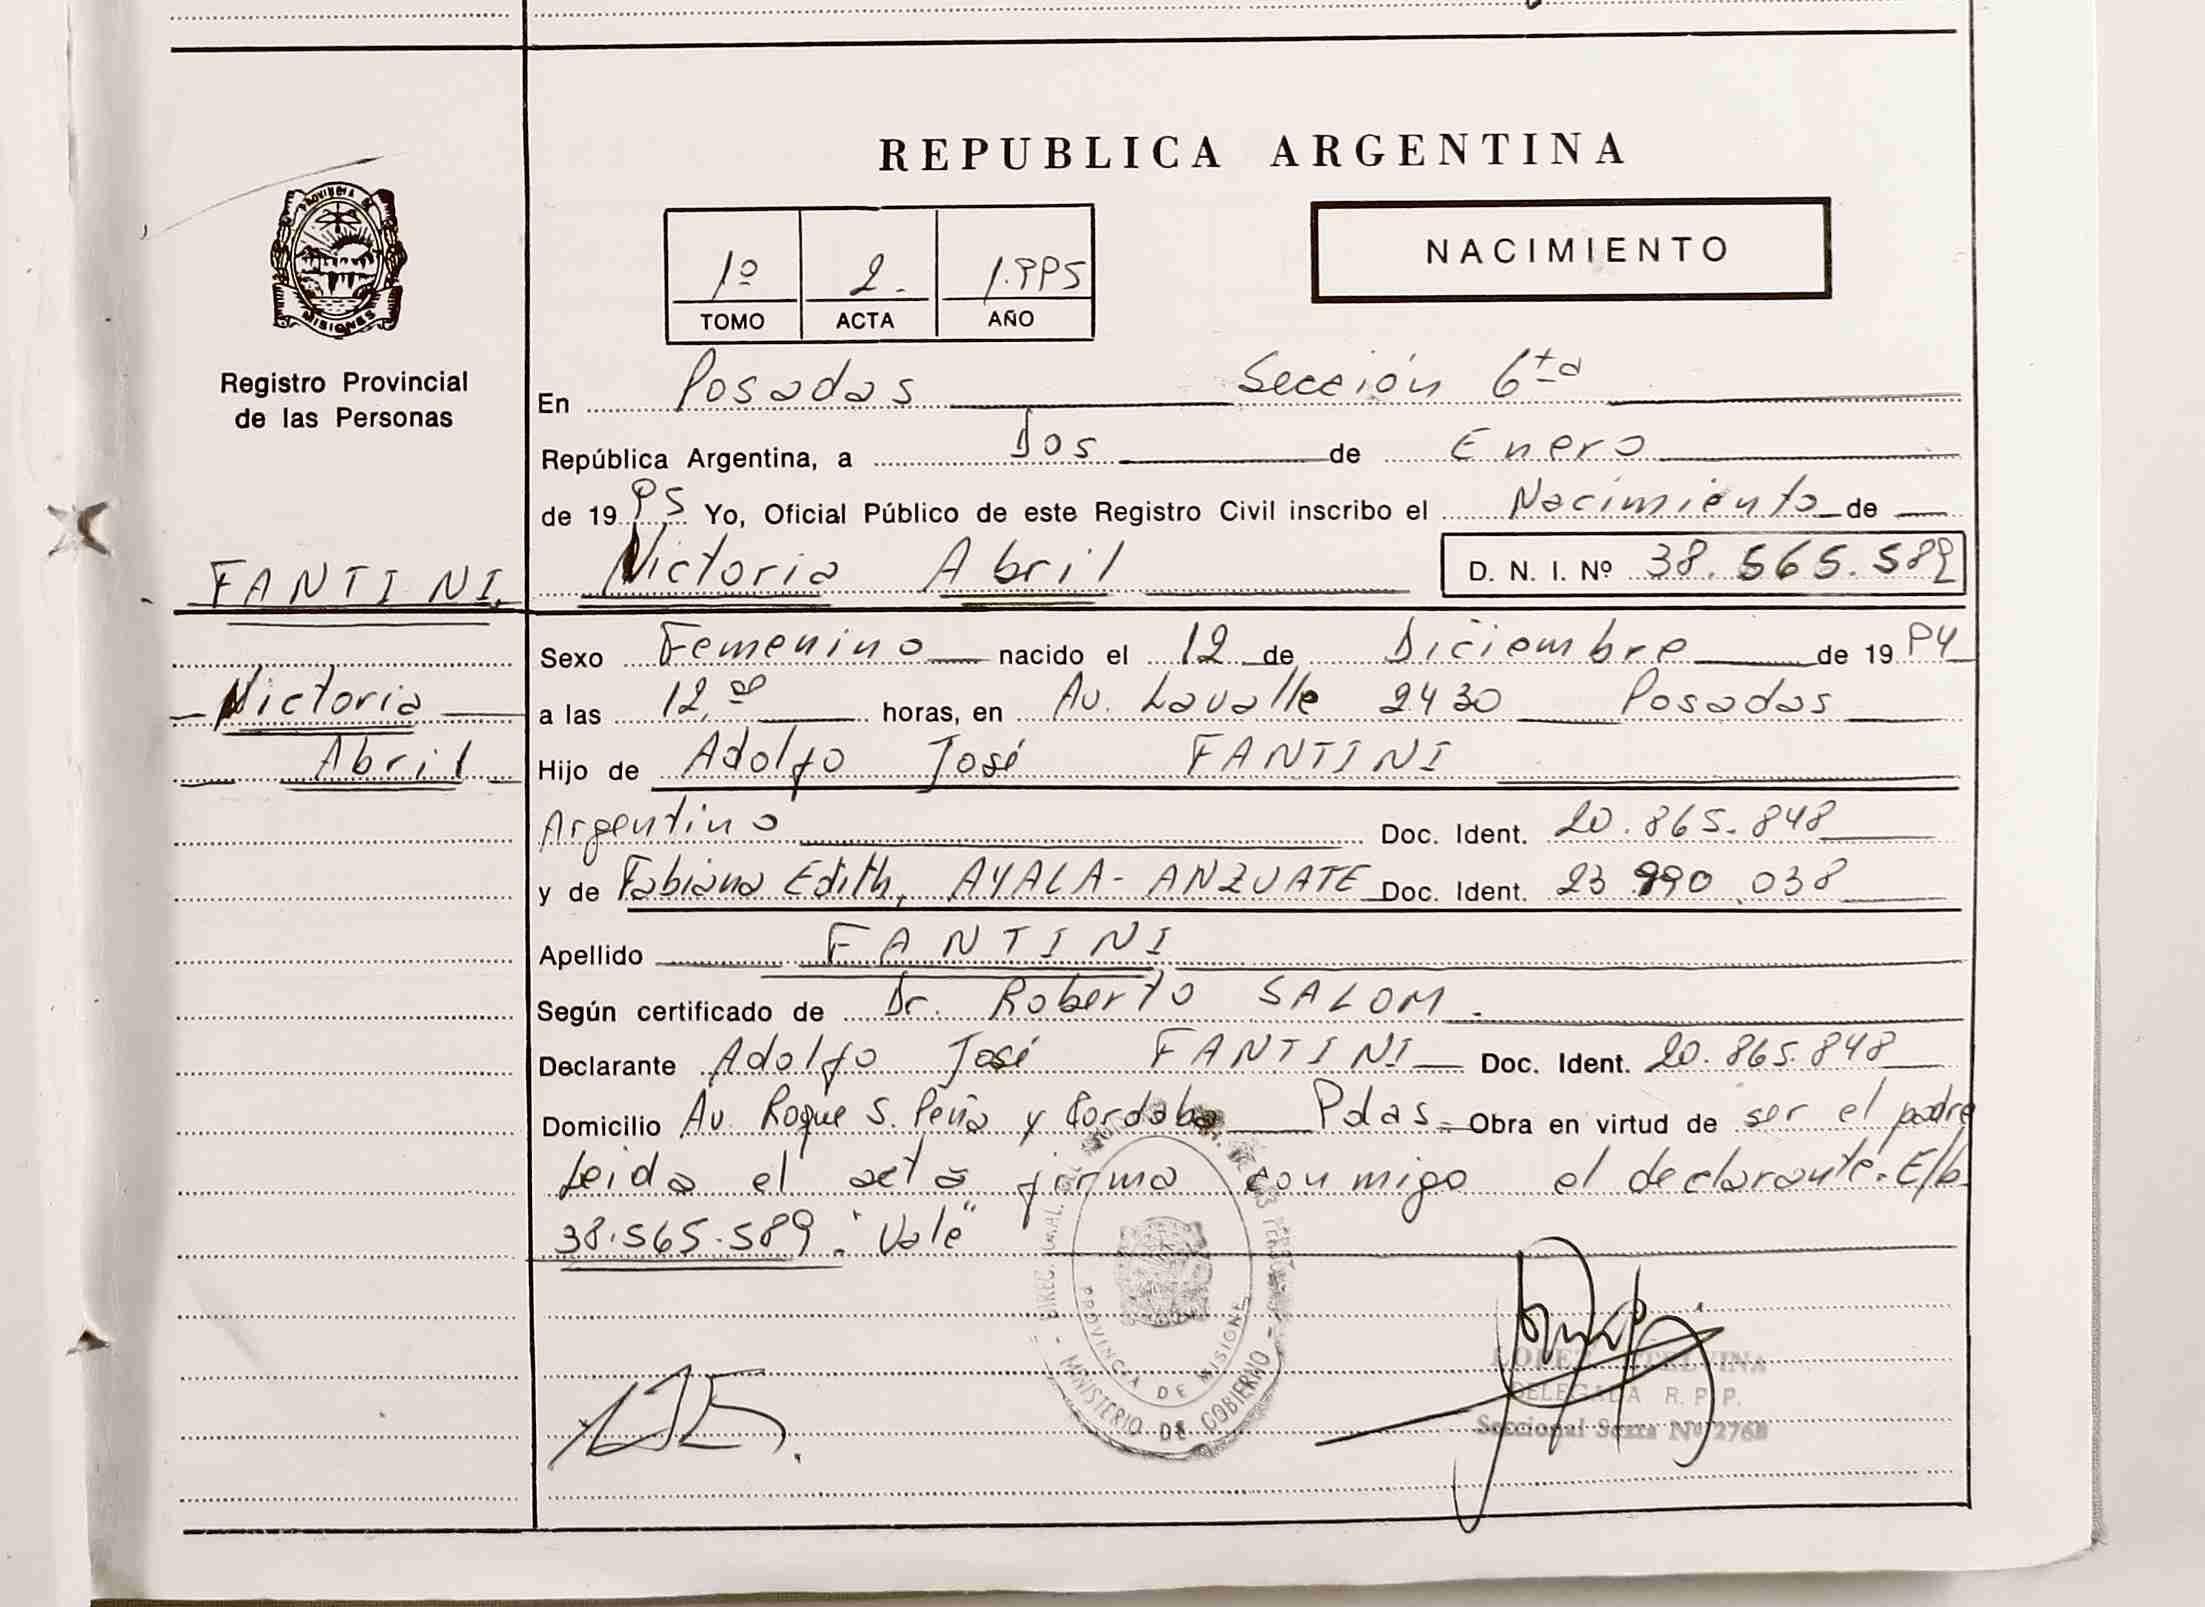 REPUBLICA ARGENTINA
PROVINCIA DE
MISIONES
Registro Provincial
de las Personas
NACIMIENTO
1º 2. 1.995
TOMO ACTA AÑO
En Posadas Sección 6ta
República Argentina, a Dos de Enero
de 1995 Yo, Oficial Público de este Registro Civil inscribo el Nacimiento de
FANTINI. Victoria Abril D. N. I. Nº 38.565.589
Sexo Femenino nacido el 12 de Diciembre de 1994
Victoria
a las 12, horas, en Av. Lavalle 2430 Posadas
Abril
Hijo de Adolfo José FANTINI
Argentino Doc. Ident. 20.865.848
y de Fabiana Edith, AYALA-ANZUATE Doc. Ident. 23.990.038
Apellido FANTINI
Según certificado de Dr. Roberto SALOM.
Declarante Adolfo José FANTINI Doc. Ident. 20.865.848
Domicilio Av. Roque S. Peña y Cordoba Pdas. Obra en virtud de ser el padre
Leida el acta firma conmigo el declarante. E/b
38.565.589: "Vale"
PROVINCIA DE MISIONES
- MINISTERIO DE GOBIERNO -
DELEGADA R. P. P.
Seccional Sexta Nº 2768